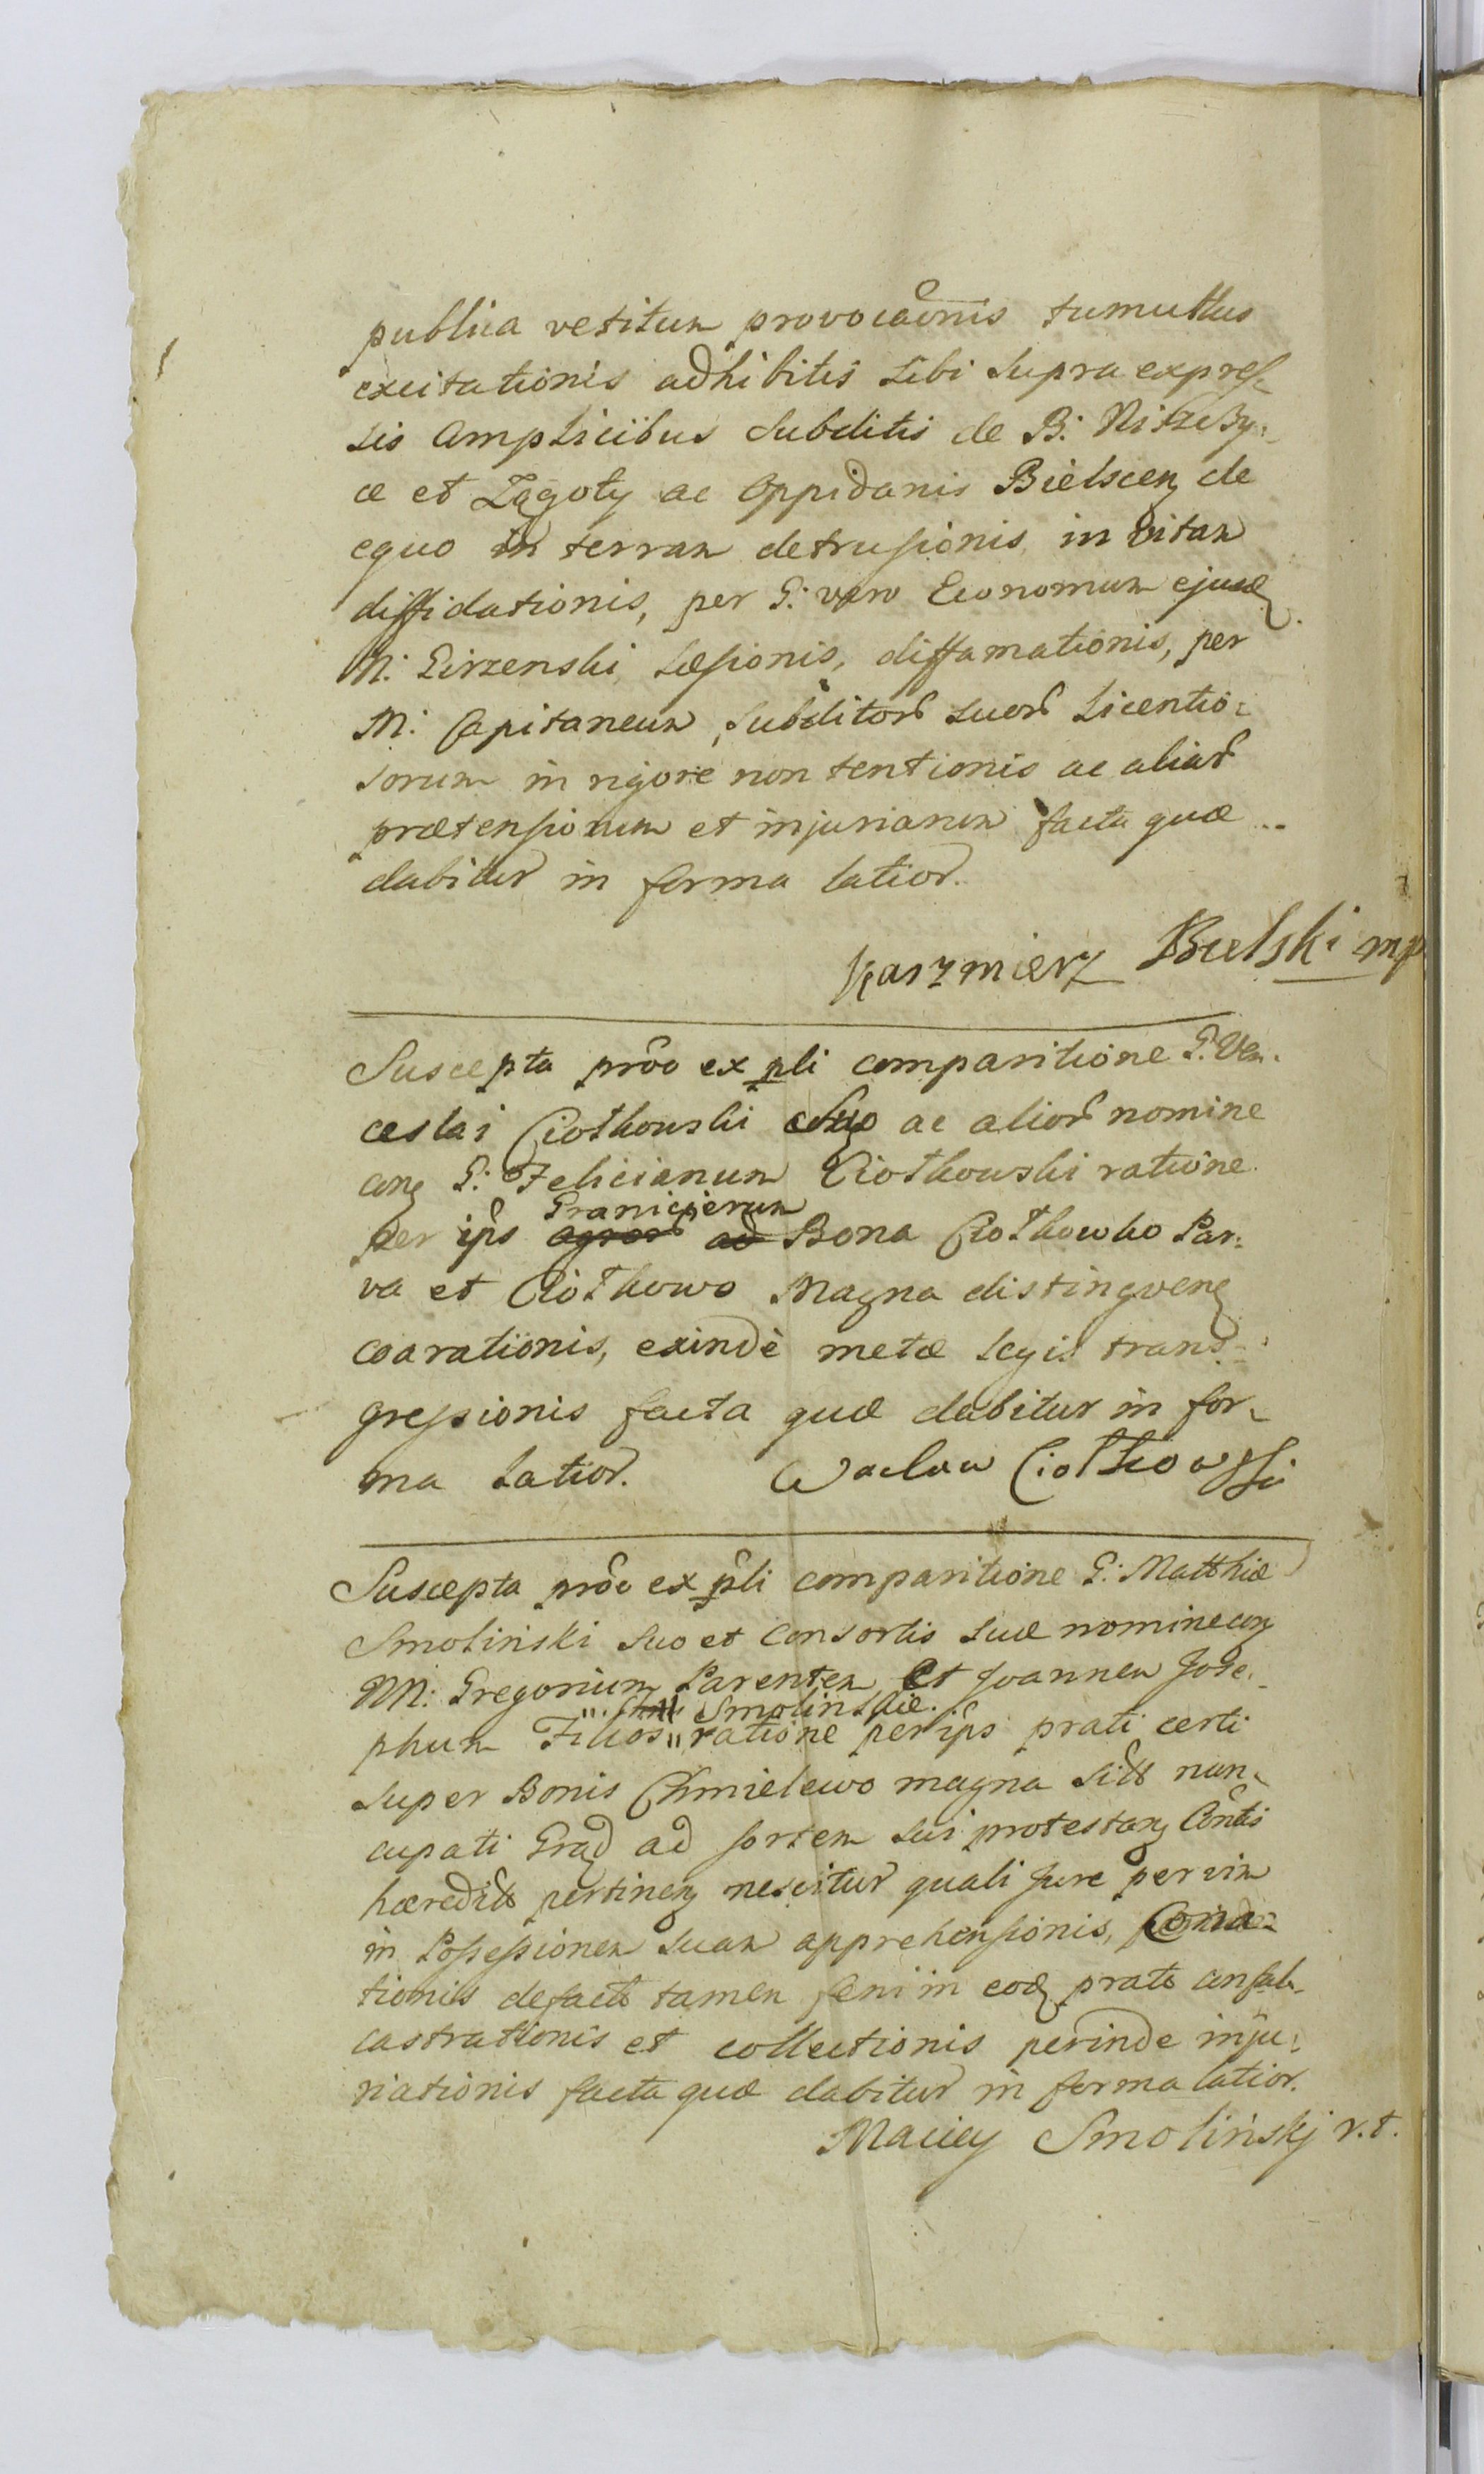 publica vetitum provocaōnis tumultus
excitationis adhibitis sibi supra expres-
sis Complicibus subditis de B: Niszczy-
ce et Zągoty ac Oppidanis Bielscen de
equo in terram detrusionis, in vitam
diffidationis, per G: vero Economum ejusd
N: Girzenski læsionis, diffamationis, per
M: Capitaneum subditor suor Licentio:
sorum in rigore non tentionis ac aliar
prætensionum et injuriarum facta quæ
dabitur in forma latior.
Kazmierz Bielski mp
Suscepta prõo ex pli comparitione G: Ven-
ceslai Ciołkowski suo ac alior nomine
cong G: Felicianum Ciołkowski ratione
Granicierum
per ips agror ad Bona Ciołkowko Par:
va et Ciołkowo Magna distingveng
coarationis, exindè metæ legis trans-
gressionis facta quæ dabitur in for-
ma latior. Wacław Ciołkowski
Suscepta prõo ex pli comparitione G: Matthiæ
Smoliński suo et Consortis suæ nomine cong
NN: Gregorium Parentem et Joannem Jose-
Smolinskie
phum Filios ratione per ips prati certi
super Bonis Chmielewo magna sitt nun-
cupati Grąd ad sortem sui protestang Contis
hæreditt pertineng nescitur quali jure per vim
in Possessionem suam apprehensionis,
tionis defacto tamen feni in eod prato
castrationis et collectionis perinde inju:
riationis facta quæ dabitur in forma latior.
Maciey Smolińskj r.t.